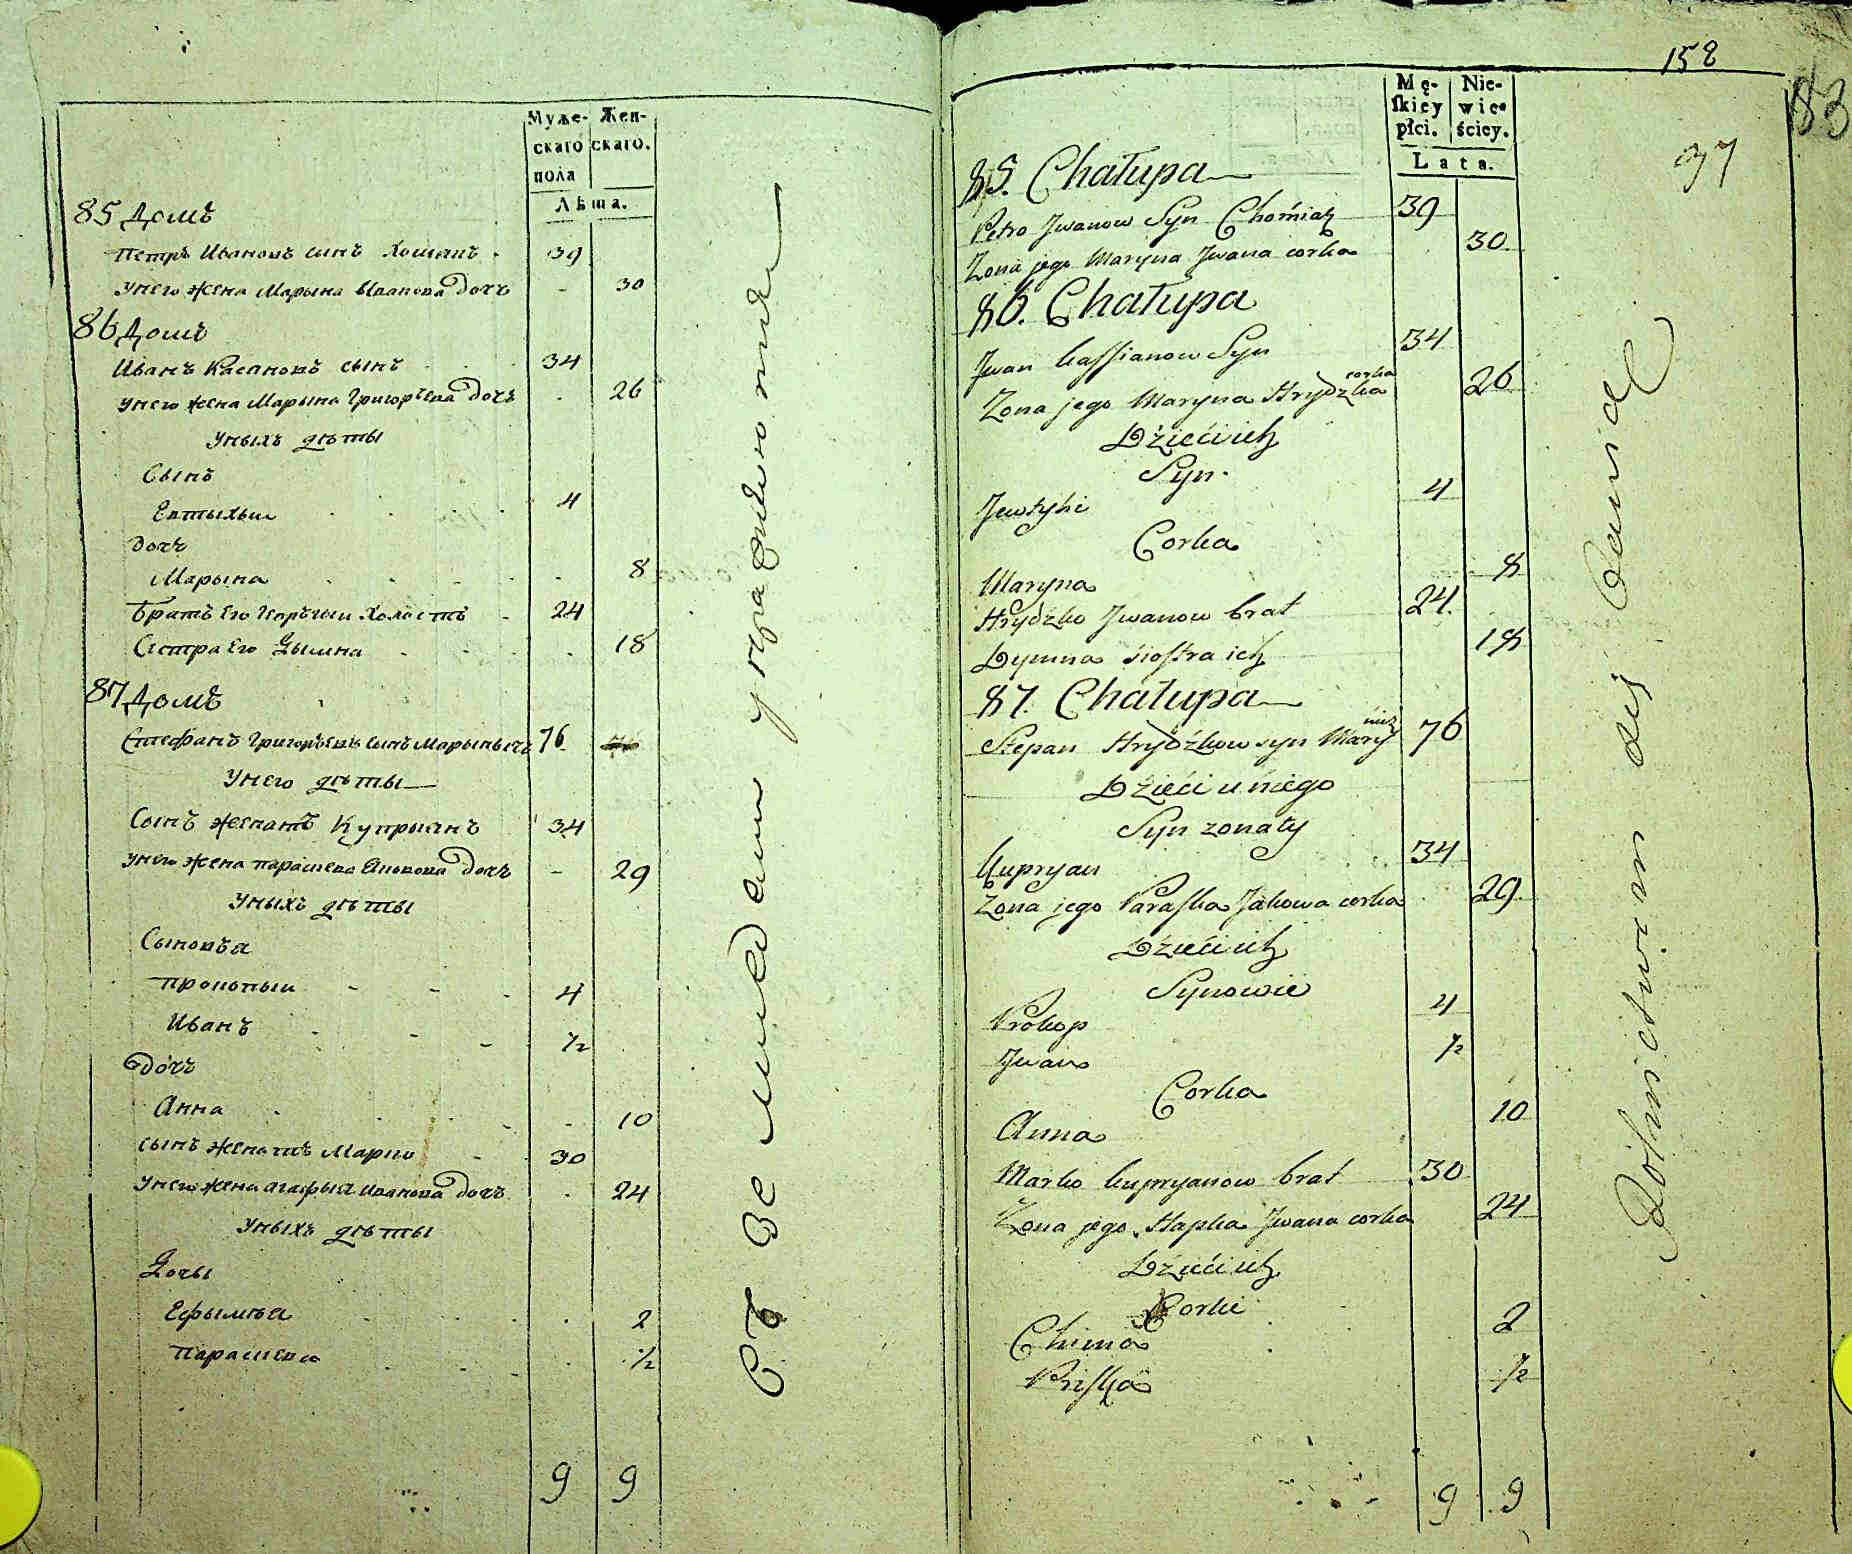 Муже-
скаго
пола
Жен-
скаго.
Лѣта.
85 Домъ
Петръ Ивановъ сынъ Хомякъ 39
Унего жена Марына Иванова дочъ - 30
86 Домъ
Иванъ Касяновъ сынъ 34
Унего жена Марына Григорьева дочъ 26
Уныхъ дѣты
Сынъ
Евтыхъи 4
дочъ
Марына 8
Братъ Его Холостъ 24
Сестра Его Дымна 18
87 Домъ
Стефанъ Григорьевъ сынъ 76
Унего дѣты
Сынъ женатъ Купрыянъ 34
Унего жена Парасцева дочъ - 29
Уныхъ дѣты
Сыновъя
Прокопъи 4
Иванъ 1/2
дочъ
Анна 10
Сынъ женатъ Марко 30
Унего жена Агафья Иванова дочъ 24
Уныхъ дѣты
Дочы
Ефымъя 2
Парасцева 1/2
9 9
158
83
97
Mę-
skiey
płci.
Nie-
wie-
ściey.
Lata.
85. Chałupa
Petro Jwanow Syn Chomiak 39
Zona jego Maryna Jwana corka 30
86. Chałupa
Jwan Kassianow Syn 34
Zona jego Maryna Hrydzka corka 26
Dzieci ich
Syn
Jewtychi 4
Corka
Maryna 8
Hrydzko Jwanow brat 24
Dymna siostra ich 18
87. Chałupa
Stepan Hrydzkow syn 76
Dzieci u niego
Syn zonaty
Kupryan 34
Zona jego Paraska Jakowa corka 29
Dzieci ich
Synowie
Prokop 4
Jwan 1/2
Corka
Anna 10
Marko Kupryanow brat 30
Zona jego Hapka Jwana corka 24
Dzieci ich
Corki
Chima 2
Priska 1/2
9 9